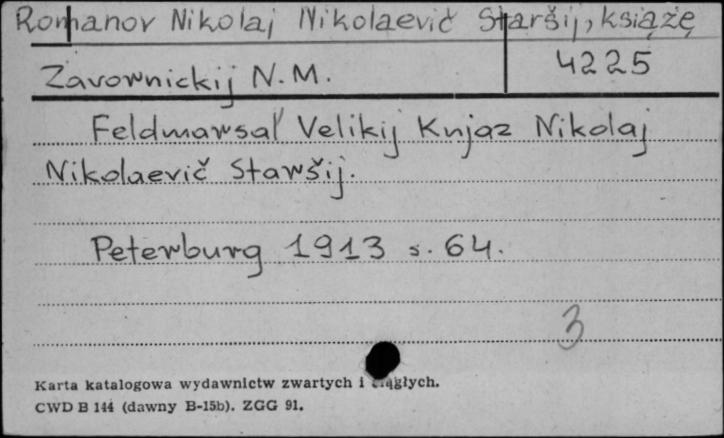 Romanov Nikolaj Nikolaevič Staršij, książę
Zavornickij N.M.
4225
Feldmarsal' Velikij Knjaz Nikolaj
Nikolaevič Staršij.
Peterburg 1913 s. 64.
3
Karta katalogowa wydawnictw zwartych i ciągłych.
CWD B 144 (dawny B-15b). ZGG 91.